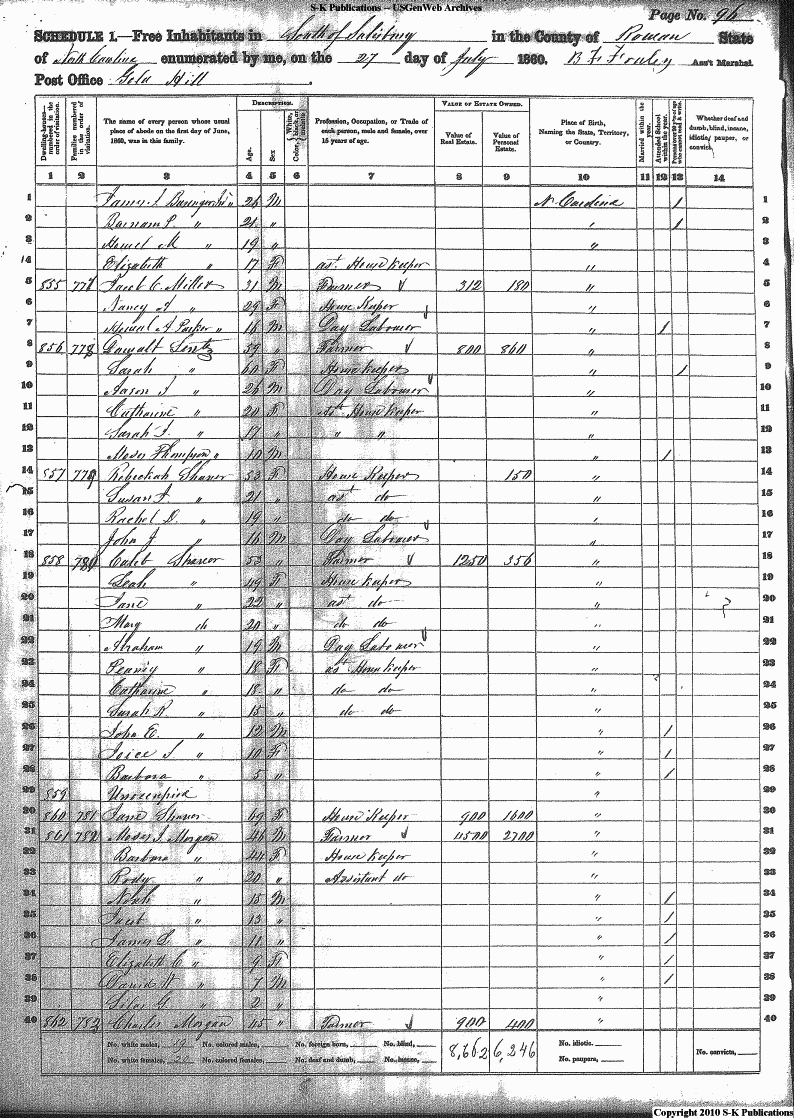 S-K Publications -- USGenWeb Archives
Page No. 96
SCHEDULE 1.—Free Inhabitants in South of Salisbury in the County of Rowan State
of North Carolina enumerated by me, on the 27 day of July 1860. Ass't Marshal.
Post Office Gold Hill
DESCRIPTION. VALUE OF ESTATE OWNED.
Dwelling-houses—numbered in the order of visitation. Families numbered in the order of visitation. The name of every person whose usual place of abode on the first day of June, 1860, was in this family. Age. Sex. White, Color, black, or mulatto. Profession, Occupation, or Trade of each person, male and female, over 15 years of age. Value of Real Estate. Value of Personal Estate. Place of Birth, Naming the State, Territory, or Country. Married within the year. Attended School within the year. Persons over 20 y'rs of age who cannot read & write. Whether deaf and dumb, blind, insane, idiotic, pauper, or convict.
1 2 3 4 5 6 7 8 9 10 11 12 13 14
1 James 26 M N. Carolina / 1
2 21 " " / 2
3 M " 19 " " 3
4 Elizabeth " 17 F ast House Keeper " 4
5 855 777 Jacob C. Miller 31 M Farmer 312 180 " 5
6 Nancy " 29 F House Keeper " 6
7 A Parker " 16 M Day Labourer " / 7
8 856 778 Lentz 59 " Farmer 800 860 " 8
9 Sarah " 60 F House keeper " / 9
10 " 26 M Day Labourer " 10
11 Catharine " 20 F ast House keeper " 11
12 Sarah " 17 " " " " 12
13 Moses Thompson " 10 M " / 13
14 857 779 Rebeckah Shaver 53 F House Keeper 150 " 14
15 Susan " 21 " ast do " 15
16 Rachel D. " 19 " do do " 16
17 John J " 16 M Day Labourer " 17
18 858 780 Caleb Shaver 53 " Farmer 1250 356 " 18
19 Leah " 49 F House keeper " 19
20 Jane " 22 " ast do " 20
21 Mary do 20 " do do " 21
22 Abraham " 19 M Day Labourer " 22
23 " 18 F ast House keeper " 23
24 Catharine " 18 " do do " 24
25 Sarah R. " 15 " do do " 25
26 John E. " 12 M " / 26
27 Joice " 10 F " / 27
28 Barbara " 5 " " / 28
29 859 Unoccupied " 29
30 860 781 Jane Shaver 69 F House Keeper 900 1600 " 30
31 861 782 Moses J. Morgan 46 M Farmer 4500 2700 " 31
32 Barbara " 44 F House keeper " 32
33 " 20 " Assistant do " 33
34 Noah " 15 M " / 34
35 Jacob " 13 " " / 35
36 James L. " 11 " " / 36
37 Elizabeth C " 9 F " / 37
38 David " 7 M " / 38
39 Silas G. " 2 " " 39
40 862 783 Charles Morgan 45 " Farmer 900 400 " 40
No. white males, 19 No. colored males, No. foreign born, No. blind, 8,662 6,246 No. idiotic. No. convicts,
No. white females, 20 No. colored females, No. deaf and dumb, No. insane, No. paupers,
Copyright 2010 S-K Publications